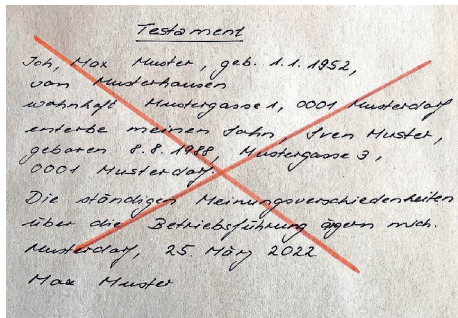 Testament
Ich, Max Muster, geb. 1.1.1952,
von Musterhausen
wohnhaft Mustergasse 1, 0001 Musterdorf
enterbe meinen Sohn, Sven Muster,
geboren 8.8.1988, Mustergasse 3,
0001 Musterdorf.
Die ständigen Meinungsverschiedenheiten
über die Betriebsführung ärgern mich.
Musterdorf, 25 März 2022
Max Muster